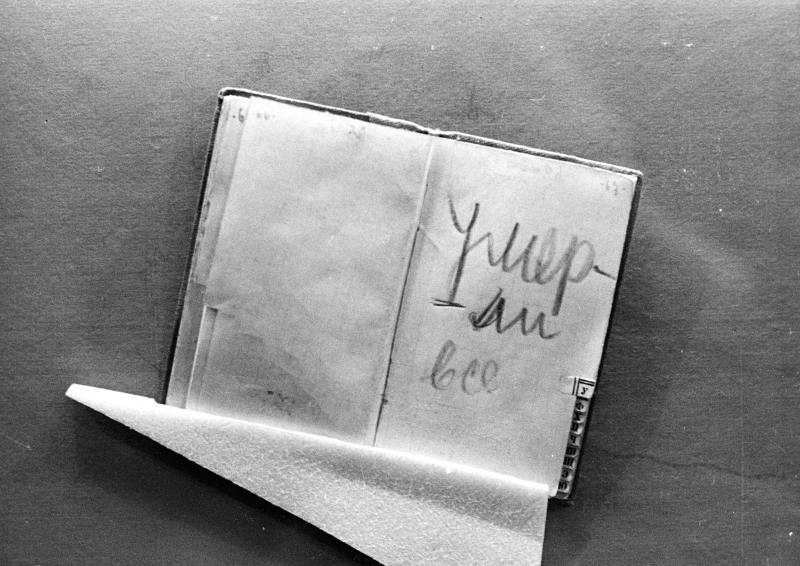 умер-
-ли
все
У